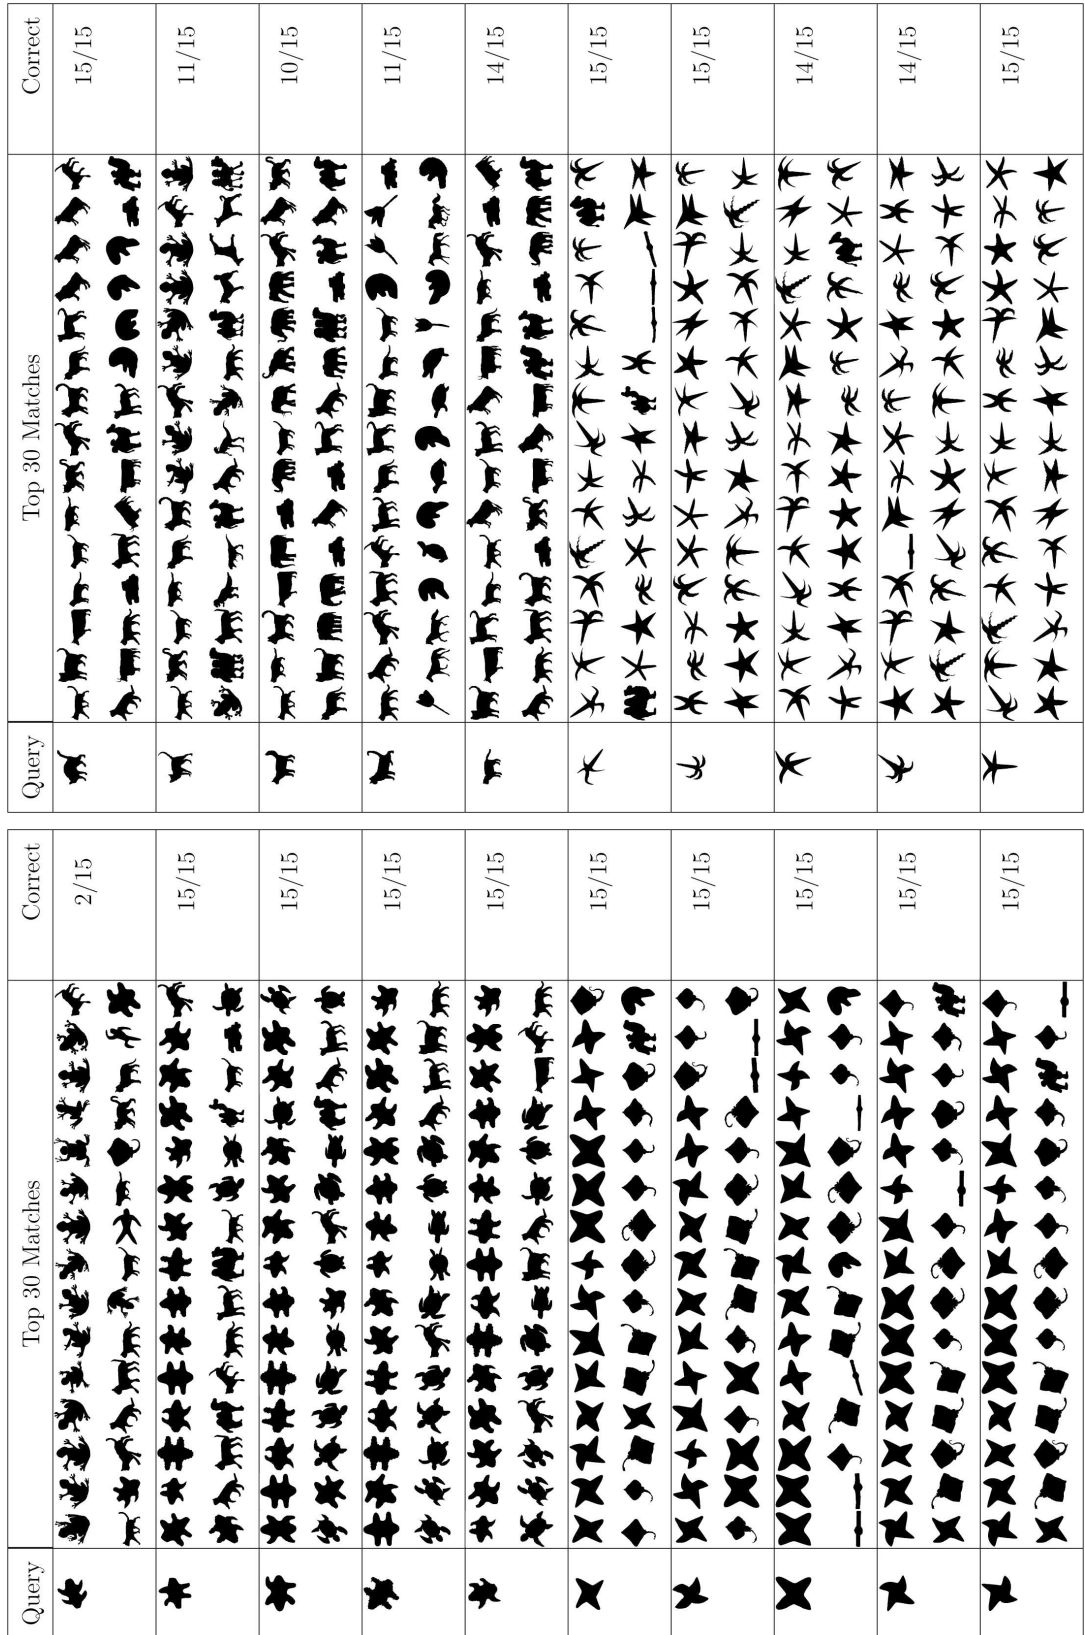 Query Top 30 Matches Correct
2/15
15/15
15/15
15/15
15/15
15/15
15/15
15/15
15/15
15/15
Query Top 30 Matches Correct
15/15
11/15
10/15
11/15
14/15
15/15
15/15
14/15
14/15
15/15